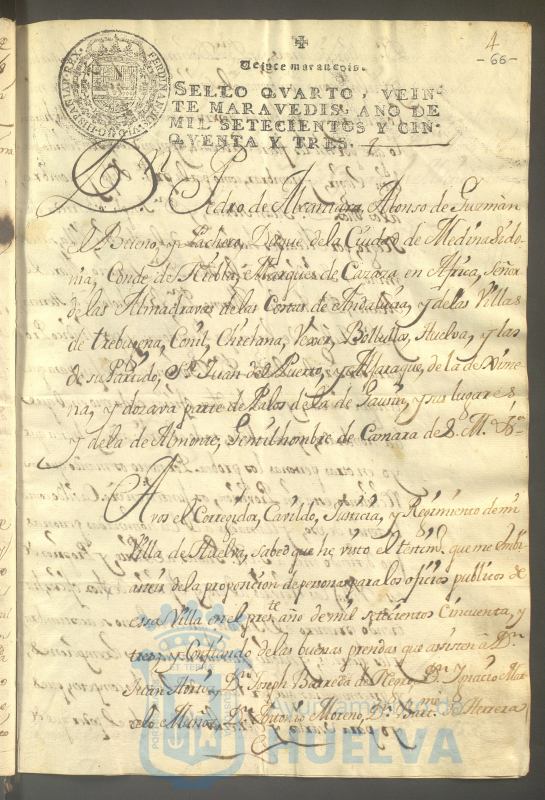 4
-66-
Veinte maravedis.
SELLO QVARTO, VEIN-
TE MARAVEDIS, AÑO DE
MIL SETECIENTOS Y CIN-
QVENTA Y TRES.
Dn Pedro de Alcantara Alonso de Guzmàn
el Bueno, y Pacheco, Duque de la Ciudad de Medina Sido-
nia, Conde de Niebla, Marques de Cazaza en Africa, Señor
de las Almadravas de las Costas de Andalucia, y de las Villas
de trebugena, Conil, Chiclana, Vexer, Bollullos, Huelva, y las
de su Partido, Sn Juan del Puerto, y Alfaraque, de la de Xime-
na, y dozava parte de Palos de la de Gaucin, y sus lugares
y de la de Almonte, Gentilhombre de Camara de S. M.
A vos el Corregidor, Cavildo, Justicia, y Regimiento de mi
Villa de Huelva, sabed que he visto el testim. que me embi
asteis de la proposicion de personas para los oficios publicos de
essa Villa en el preste año de mil setecientos Cinquenta, y
tres, y Confiando de las buenas prendas que asisten à Dn
Juan Dn Joseph Barreda de Dn Ygnacio
Muñoz, Dn Antonio Moreno, Dn Bart. de Herrera
Ayuntamiento de
HUELVA